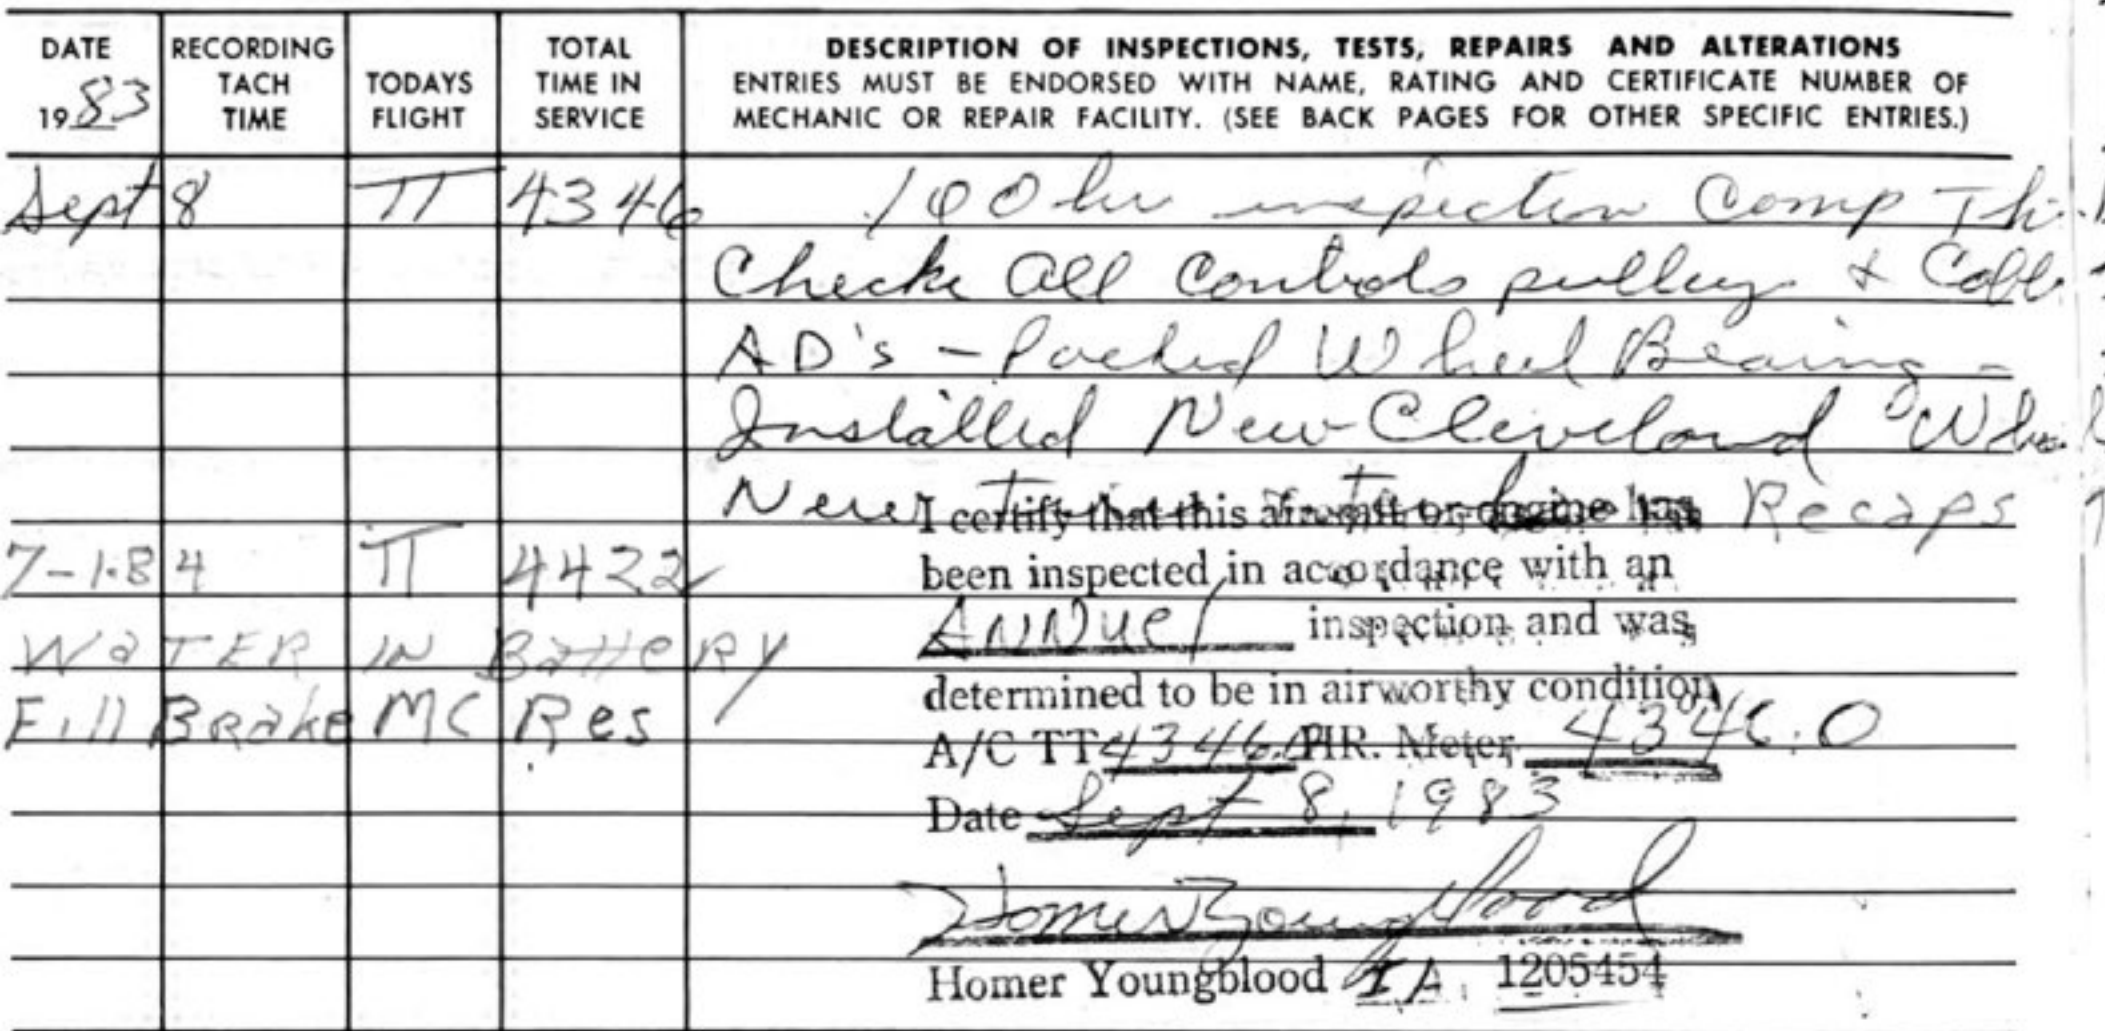 DATE
1983
RECORDING
TACH
TIME
TODAYS
FLIGHT
TOTAL
TIME IN
SERVICE
DESCRIPTION OF INSPECTIONS, TESTS, REPAIRS AND ALTERATIONS
ENTRIES MUST BE ENDORSED WITH NAME, RATING AND CERTIFICATE NUMBER OF
MECHANIC OR REPAIR FACILITY. (SEE BACK PAGES FOR OTHER SPECIFIC ENTRIES.)
Sept 8 TT 4346 100 hr inspection Comp Thi
Checke All Controls pulleys & Cabl
AD's - Packed Wheel Bearing -
Installed New Cleveland Whe
New Recaps
I certify that this aircraft or engine has
7-1-84 TT 4422 been inspected in accordance with an
WaTER IN BatteRY
ANNUel inspection and was
Fill BRake MC Res
determined to be in airworthy condition
A/C TT 4346.0 HR. Meter 4346.0
Date Sept 8, 1983
Homer Youngblood
Homer Youngblood IA 1205454